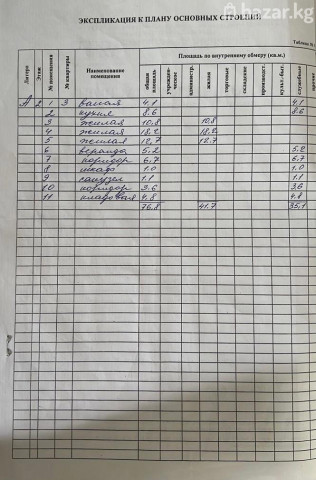 bazar.kg
ЭКСПЛИКАЦИЯ К ПЛАНУ ОСНОВНЫХ СТРОЕНИЙ
Таблица
Литера Этаж № помещения № квартиры Наименование помещения Площадь по внутреннему обмеру (кв.м.)
общая площадь учрежденческое администр. жилая торговые складские производст. культ.-быт. служебные прочие
А 2 1 3 ванная 4,1 4,1
2 кухня 8.6 8.6
3 жилая 10,8 10,8
4 жилая 18,2 18,2
5 жилая 12,7 12,7
6 веранда 5.2 5.2
7 коридор 6.7 6.7
8 шкаф 1.0 1.0
9 санузел 1.1 1.1
10 коридор 3.6 3.6
11 кладовая 4.8 4.8
76,8 41.7 35,1